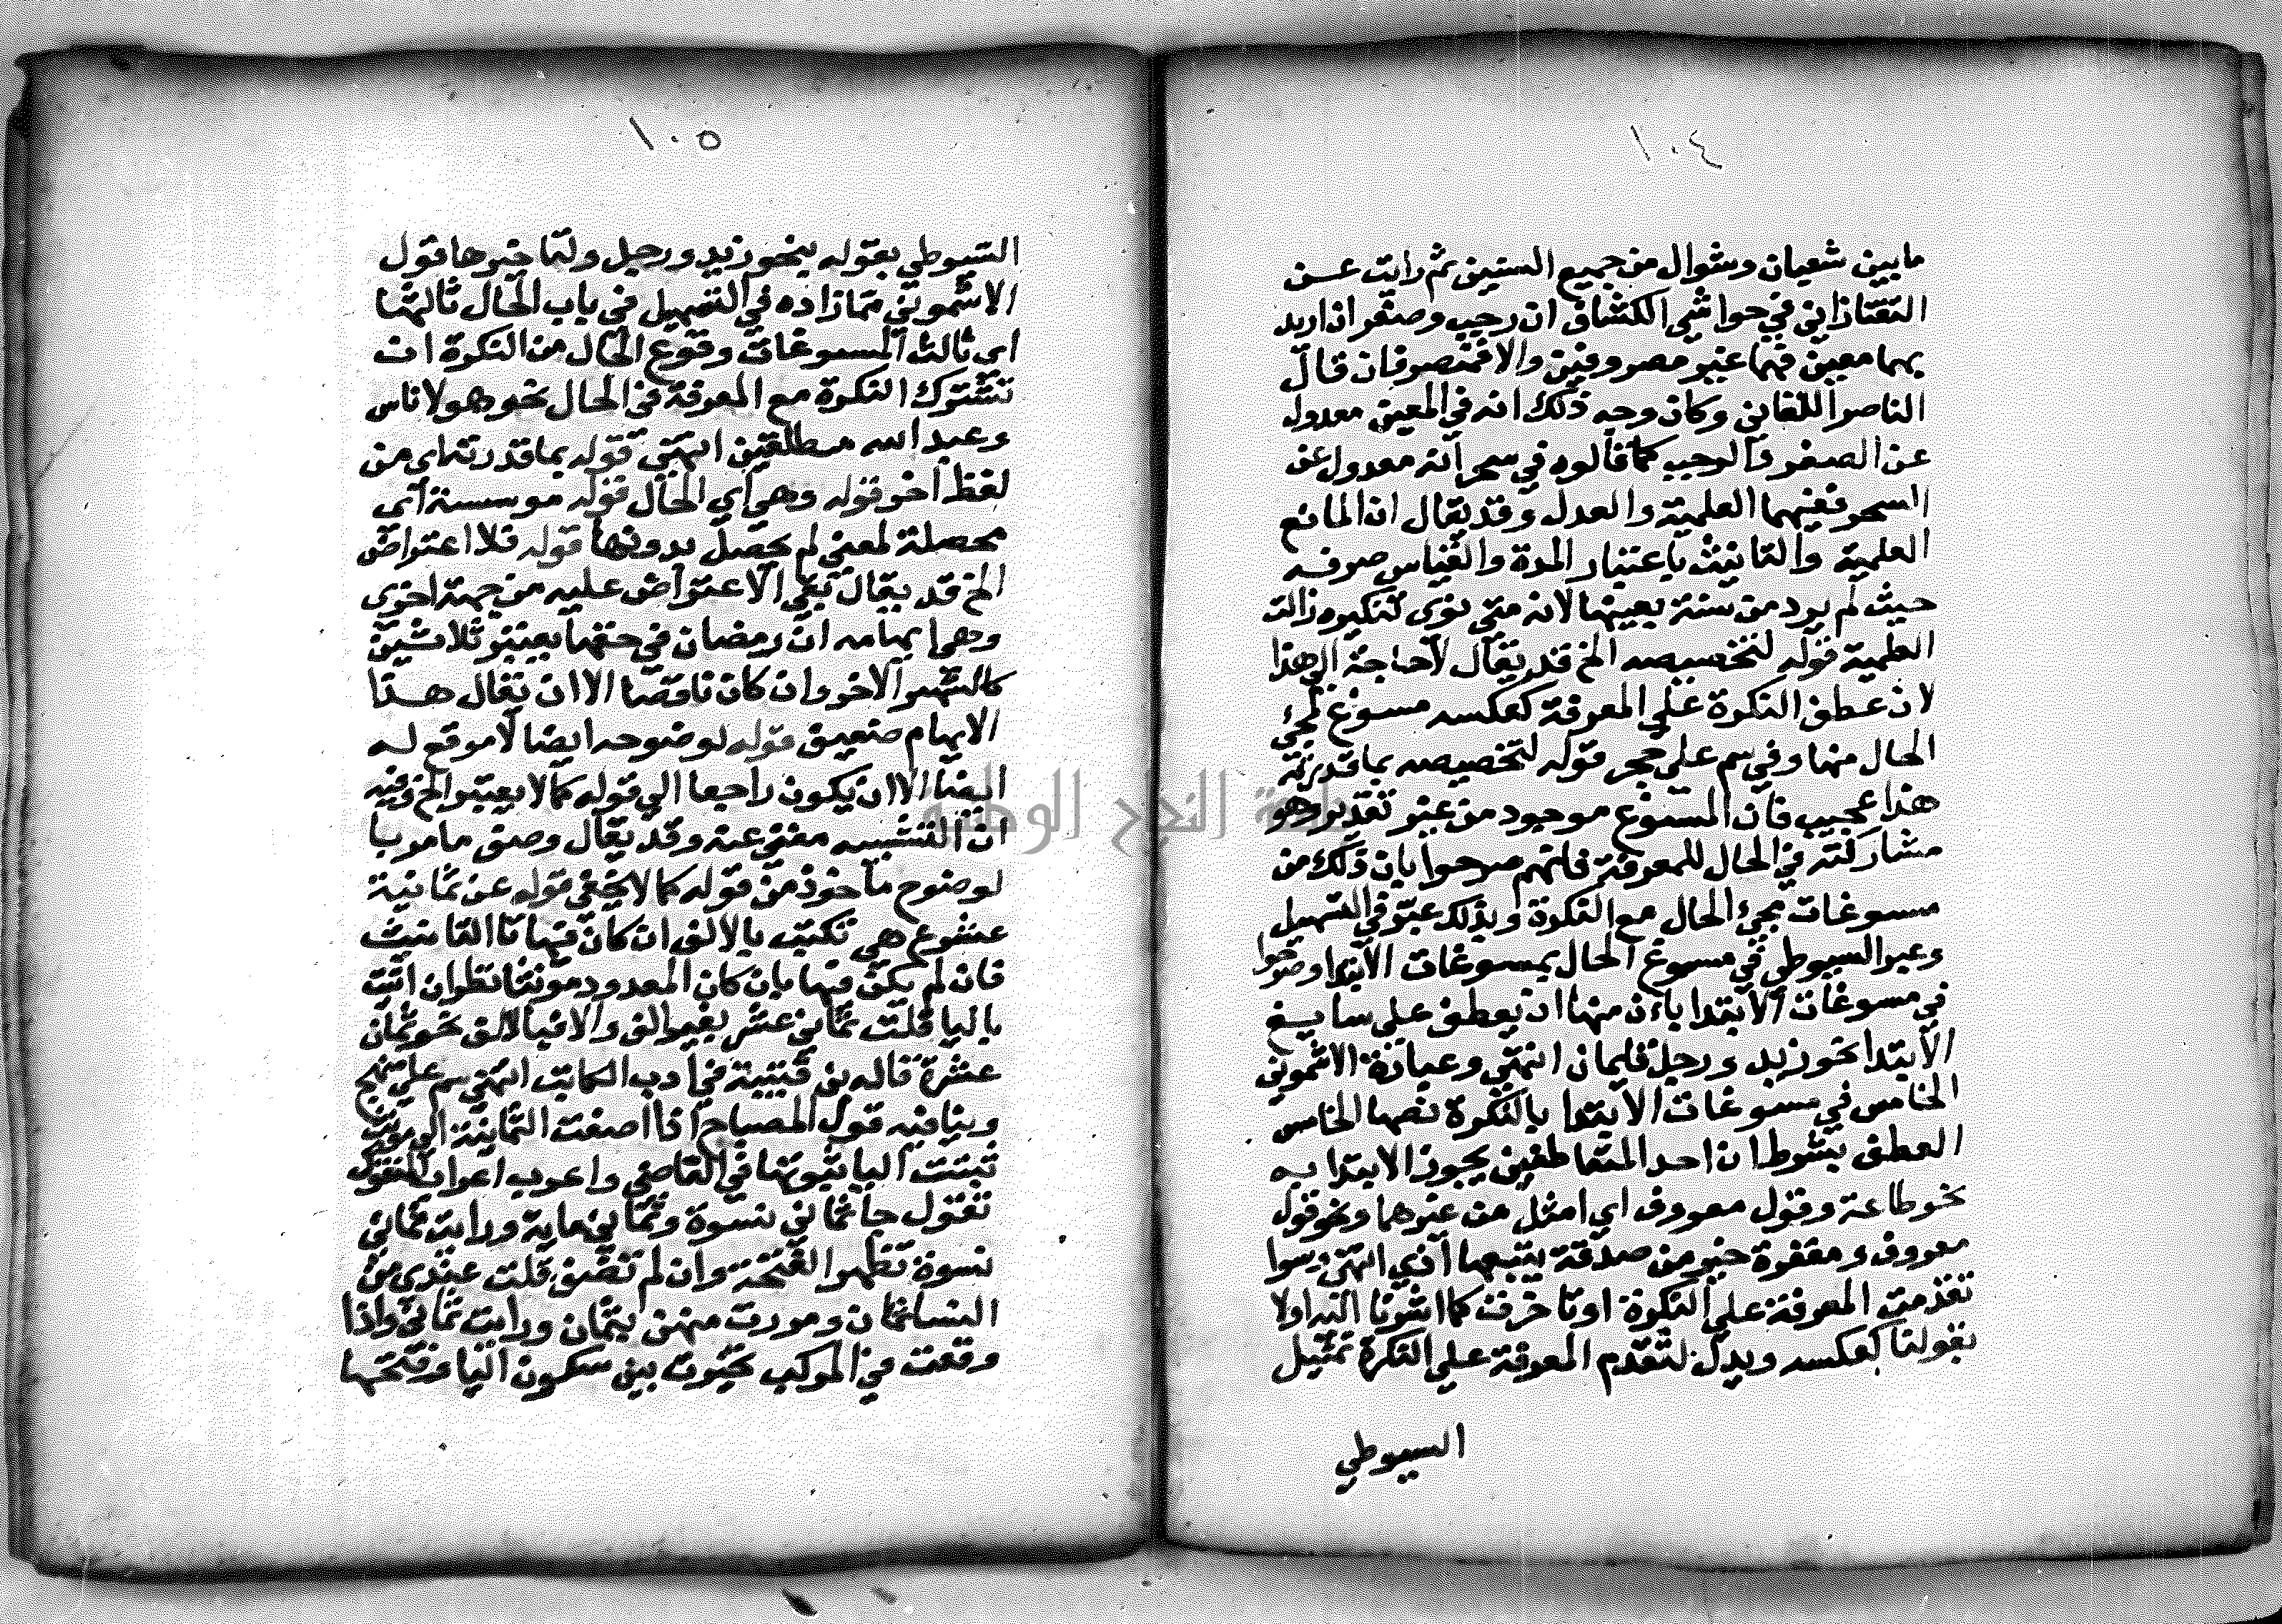 ١٠٤
ما بين شعبان وشوال من جميع السنين ثم رايت عن
التفتازاني في حواشي الكشاف ان رجب وصفر ان اريد
بهما معين فهما غير مصروفين والا فمنصرفان قال
الناصر اللقاني وكان وجه ذلك انه في المعين معدول
عن الصفر والرجب كما قالوه في سحر انه معدول عن
السحر ففيهما العلمية والعدل وقد يقال ان المانع
العلمية والتانيث باعتبار المدة والقياس صرفه
حيث لم يرد من سنة بعينها لانه متى نوى تنكيره زالت
العلمية قوله لتخصيصه الخ قد يقال لا حاجة الى هذا
لان عطف النكرة على المعرفة كعكسه مسوغ لمجئ
الحال منها وفي سم على حجر قوله لتخصيصه بما قدرته
هذا عجيب فان المسوغ موجود من غير تقدير وهو
مشاركته في الحال للمعرفة فانهم صرحوا بان ذلك من
مسوغات مجئ الحال مع النكرة وبذلك عبر في التسهيل
وعبر السيوطي في مسوغ الحال بمسوغات الابتدا وصرحوا
في مسوغات الابتدا باءن منها ان يعطف على سايغ
الابتدا نحو زيد ورجل قايمان انتهى وعبارة الاشموني
الخامس في مسوغات الابتدا بالنكرة نصها الخامس
العطف بشرط ان احد المتعاطفين يجوز الابتدا به
نحو طاعة وقول معروف اي امثل من غيرهما ونحو قول
معروف ومغفرة خير من صدقة يتبعها اذي انتهى وسوا
تقدمت المعرفة على النكرة او تاخرت كما اشرنا اليه اولا
بقولنا كعكسه ويدل لتقدم المعرفة على النكرة تمثيل
السيوطي
١٠٥
السيوطي بقوله بنحو زيد ورجل ولتاخيرها قول
الاشموني مما زاده في التسهيل في باب الحال ثالثها
اي ثالث المسوغات وقوع الحال من النكرة ان
تشترك النكرة مع المعرفة في الحال نحو هولا ناس
وعبد الله منطلقين انتهى قوله بما قدرته اي من
لفظ اخر قوله وهي اي الحال قوله موسسة اي
محصلة لمعنى لم يحصل بدونها قوله فلا اعتراض
الخ قد يقال بقي الاعتراض عليه من جهة اخرى
وهي ايهامه ان رمضان في حقها يعتبر ثلاثين
كالشهر الاخر وان كان ناقصا الا ان يقال هذا
الايهام ضعيف قوله لوضوحه ايضا لا موقع له
ايضا الا ان يكون راجعا الى قوله كما لا يعتبر الخ وفيه
ان التشبيه مغني عنه وقد يقال وصف ما مر با
لوضوح ماخوذ من قوله كما لا يخفى قوله عن ثمانية
عشر ع هي تكتب بالالف ان كان فيها تا التانيث
فان لم يكن فيها بان كان المعدود مونثا نظر ان اتيت
باليا قلت ثماني عشر بغير الف والا فبالالف نحو ثمان
عشرة قاله بن قتيبة في ادب الكاتب انتهى سم على منهج
وينافيه قول المصباح اذا اضفت الثمانية الى مونث
تثبتت اليا ثبوتها في القاضي واعرب اعراب المنقوص
تقول جا ثماني نسوة وثماني ماية ورايت ثماني
نسوة تظهر الفتحة وان لم تضف قلت عندي من
النسا ثمان ومررت منهن بثمان ورايت ثماني واذا
وقعت في المركب تخيرت بين سكون اليا وفتحها
جامعة النجاح الوطنية